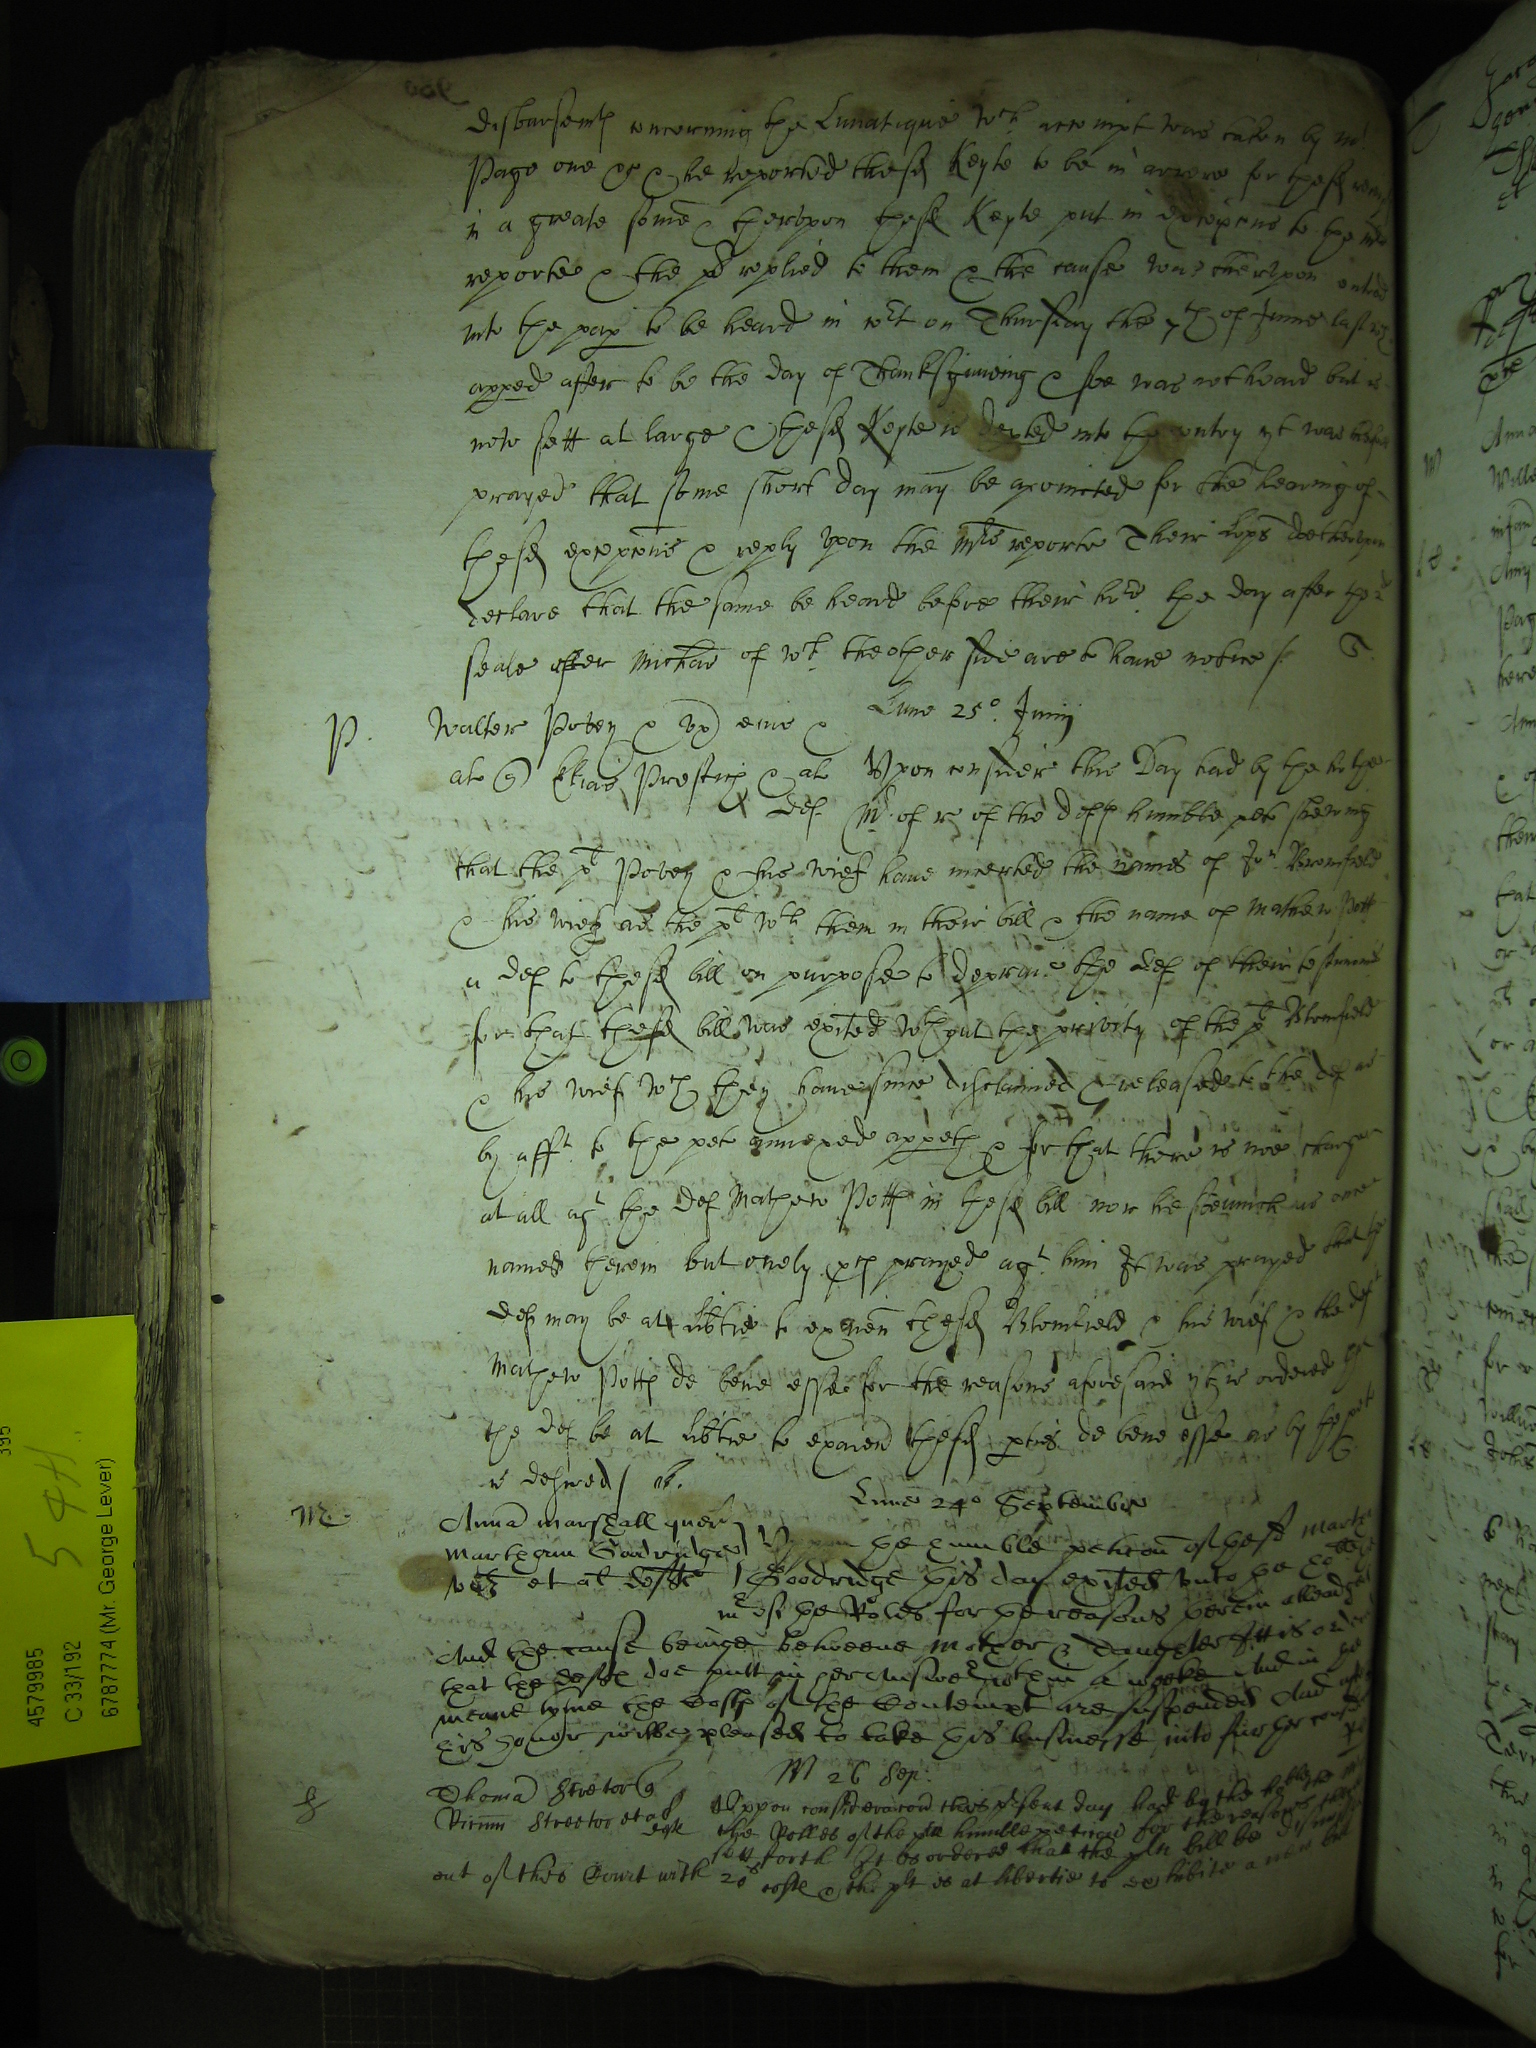 disbursemts concerning the Lunatique wch accompt was taken by Mr
Page one &c & he reported thesd Keyte to be in arrere for thesd
in a greate some & therupon thesd Keyte put in excepcons to the Mrs
reporte & the pl replied to them & the cause was therupon entred
into the pap to be heard in Cort on Thursday the 7th of June last wch
apped after to be the day of Thanksgiuing & soe was not heard but is
now sett at large & thesd Keyte is dected into the contry yt was therfore
prayed that some short day may be apointed for the hearing of
thesd excepcons & reply vpon the Mrs reporte Their Lopps doe therupon
declare that the same be heard before their honrs the day after the
seale after Michas of wch the other side are to haue notice
P.
Lune 25o Junij
Walter Povey & vx eius &
al Elias Prestich & al Vpon consider this Day had by the ho the
def Mr of ro of the defts humble pet shewing
that the pl Povey & his wief haue incerted the names of Jon Blomfield
& his wief as the pl wth them in their bill & the name of Mathew Pott
a def to thesd bill on purpose to depraue the def of their testimonie
for that thesd bill was exited wthout the privity of the pl Blomfield
& his wief wch they haue since disclaimed & released to the def as
by afft to the pet annexed appeth & for that there is noe charge
at all agt the def Mathew Pott in thesd bill nor he soe much as once
named therein but onely pces prayed agt him It was prayed that the
def may be at libtie to examen thesd Blomfield & his wief & the def
Mathew Pott de bene esse for the reasons aforesaid yt is ordered that
the def be at libtie to examen thesd pties de bene esse as by the pet
is desired
M.
Lune 24o September
Anna Marshall quer
Martham Goodridge Vppon the humble peticon of thesd Martha
vid et al defte Goodridge this day exited vnto the
Mr of the Roles for the reasons therein alleadged
And the cause beinge betweene Mother & Daughter Itt is ordered
that the defte doe putt in her Answere wthin a weeke And in the
meane tyme the Costs of the Contempt are suspended And after
his honor wilbe pleased to take this businesse into further consid
M 26 Sep.
S
Thoma Streetor
Ricum Streetor et al Vppon consideracon this psent day had by the
defte the Rolles of the pltes humble peticon for the reasons therein
sett forth It is ordered that the plts bill be dismissed
out of this Court with 20s costs & the plt is at libertie to exhibite a new bill
4579985
C 33/192
6787774 (Mr. George Lever)
395